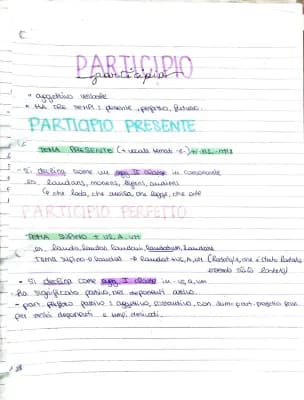 PARTICIPIO
participio
• aggettivo verbale
• HA TRE TEMPI: presente, perfetto, futuro.
PARTICIPIO PRESENTE
TEMA PRESENTE (+ vocale temat. -e-) + -ns, -ntis
• Si declina come un agg. II classe in consonante
es. laudans, monens, legens, audiens
che loda, che che legge, che ode
PARTICIPIO PERFETTO
TEMA SUPINO + US, A, UM
es. laudo, laudas, laudavi, laudatum, laudare
Tema supino = laudat → laudat + us, A, UM (lodato/a, che è stato lodato
essendo stato lodato)
• Si declina come agg. I classe in -us, a, um
- ha significato passivo, nei deponenti attivo.
- part. perfetto passivo: aggettivo, sostantivo, con sum
per verbi deponenti e